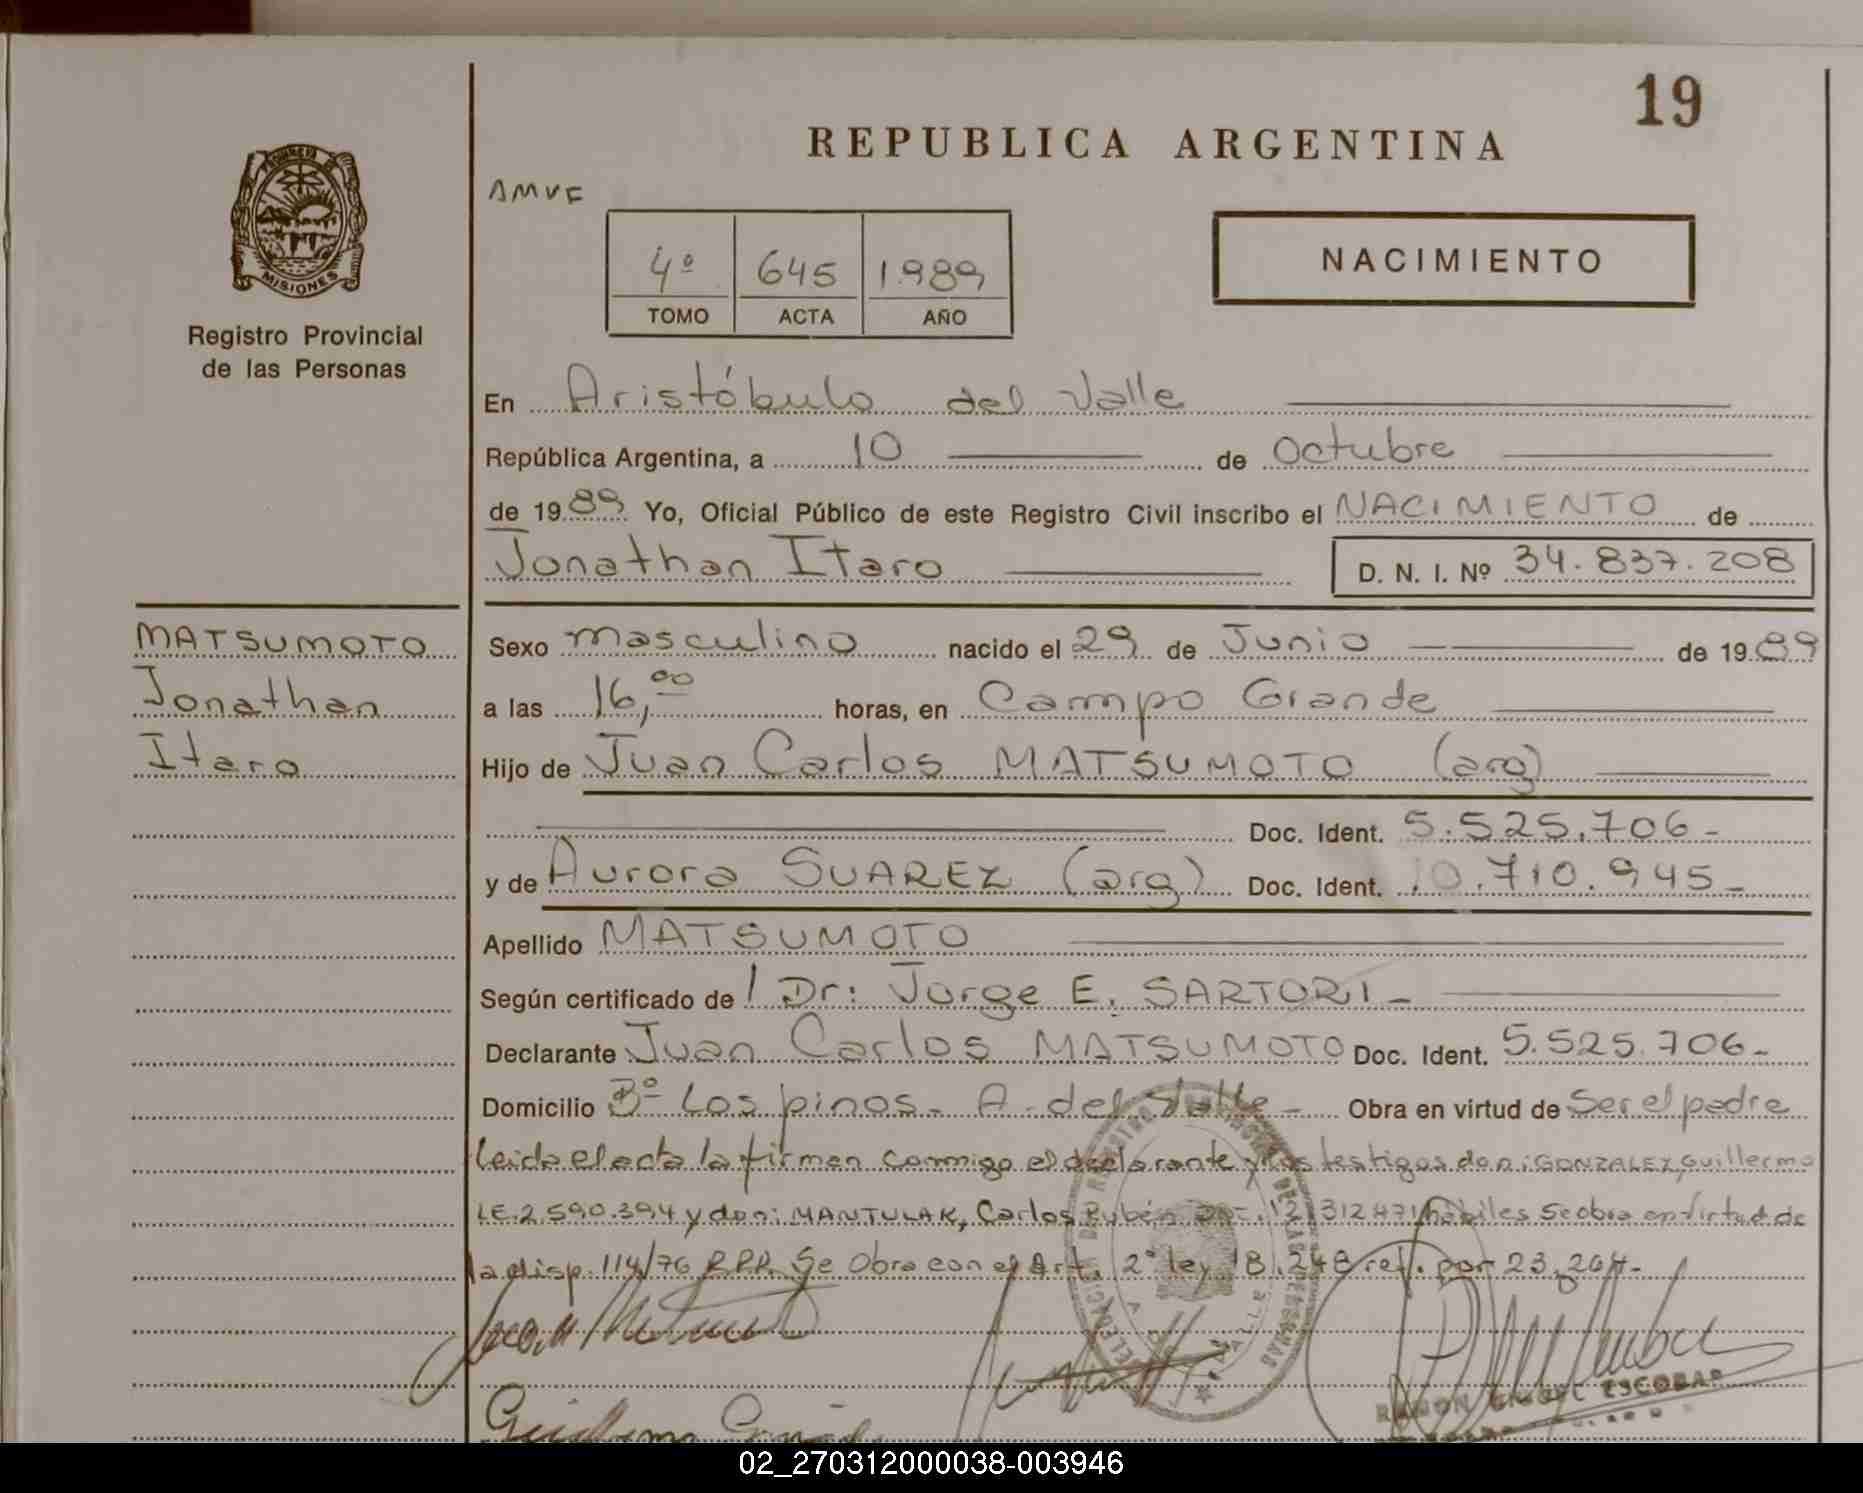 19
REPUBLICA ARGENTINA
AMVE
4º 645 1989
TOMO ACTA AÑO
NACIMIENTO
MISIONES
Registro Provincial
de las Personas
En Aristóbulo del Valle
República Argentina, a 10 de Octubre
de 1989 Yo, Oficial Público de este Registro Civil inscribo el NACIMIENTO de
Jonathan Itaro D. N. I. Nº 34.837.208
MATSUMOTO
Jonathan
Itaro
Sexo masculino nacido el 29 de Junio de 1989
a las 16,00 horas, en Campo Grande
Hijo de Juan Carlos MATSUMOTO (arg)
Doc. Ident. 5.525.706-
y de Aurora SUAREZ (arg) Doc. Ident. 10.710.945-
Apellido MATSUMOTO
Según certificado de / Dr: Jorge E. SARTORI-
Declarante Juan Carlos MATSUMOTO Doc. Ident. 5.525.706-
Domicilio Bº Los pinos- A. del Valle- Obra en virtud de Ser el padre
Leida el acta la firman conmigo el declarante y los testigos don: GONZALEZ, Guillermo
LE.2.590.394 y don: MANTULAK, Carlos Rubén habiles se obra en virtud de
la disp. 114/76 R.P.P. Se Obra con el Art. 2º ley 18.248 ref. por 23.264-
RAMON ESCOBAR
02_270312000038-003946